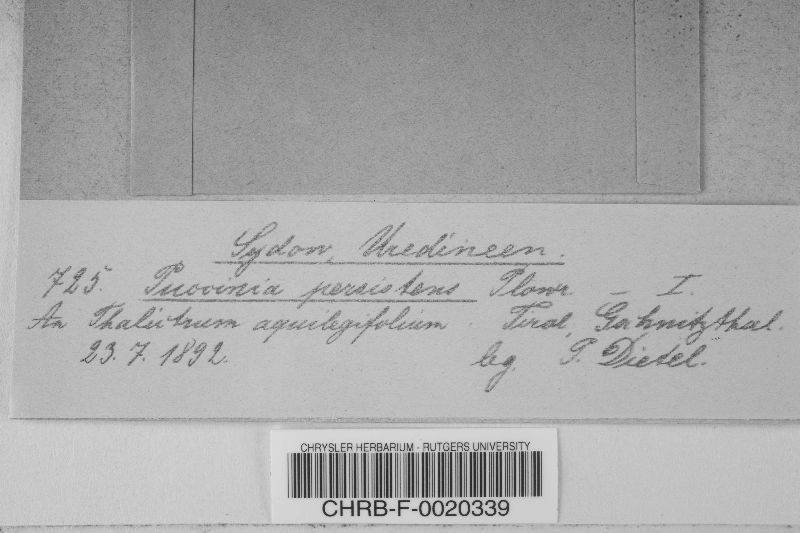 Sydon, Uredineen.
725. Puccinia persistens Plowr — I.
An Thalictrum aquilegifolium. Tirol, Gschnitzthal.
23. 7. 1892. leg. P. Dietel.
CHRYSLER HERBARIUM - RUTGERS UNIVERSITY
CHRB-F-0020339